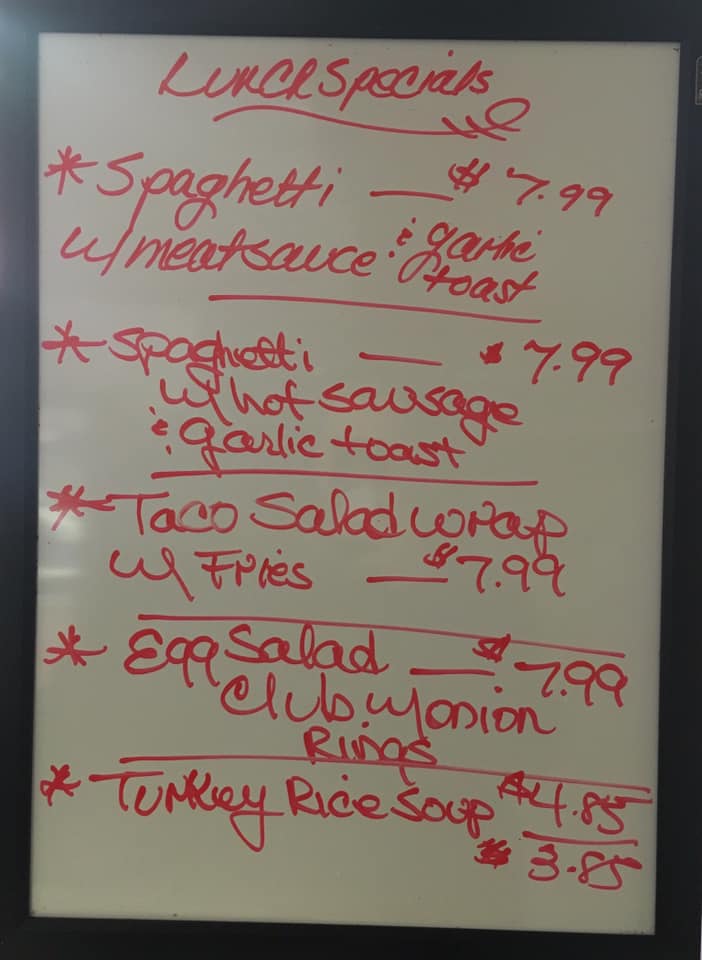 Lunch Specials
* Spaghetti — $7.99
w/ meatsauce & garlic
toast
* Spaghetti — $7.99
w/ hot sausage
& garlic toast
* Taco Salad wrap
w/ Fries — $7.99
* Egg Salad — $7.99
Club w/ onion
Rings
* Turkey Rice Soup $4.85
$3.85